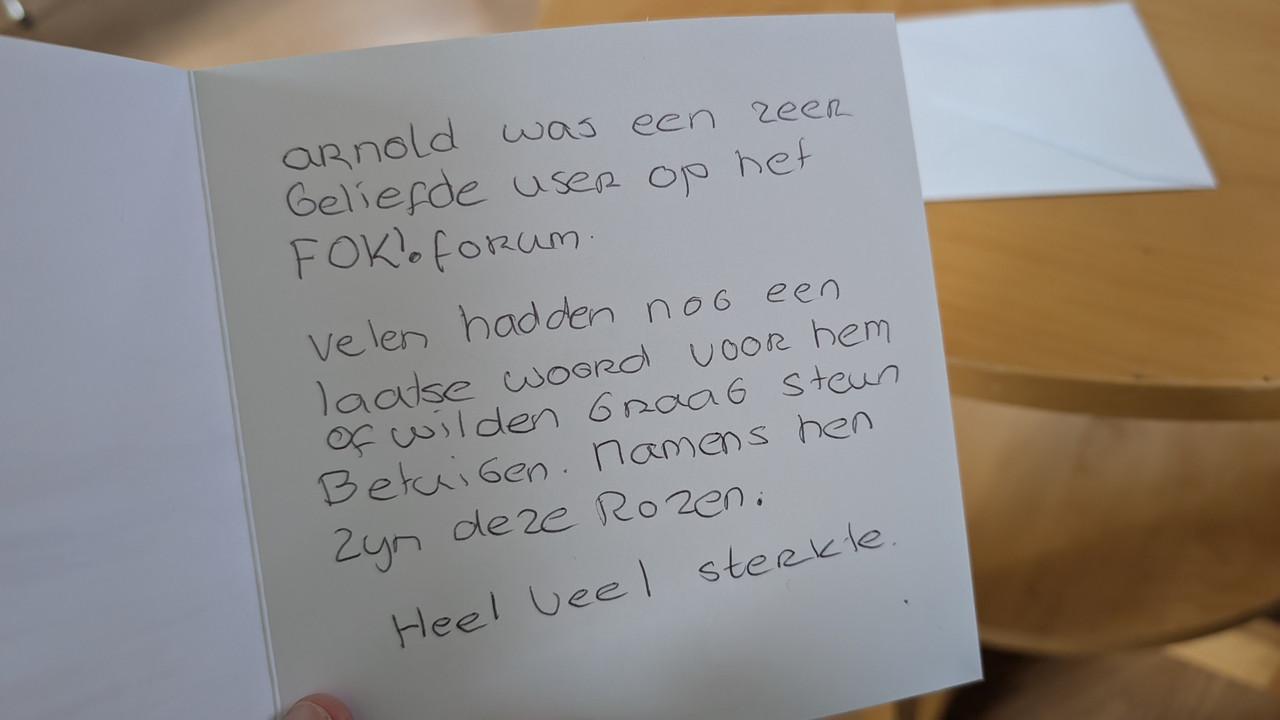 Arnold was een zeer
Geliefde user op het
FOK!.forum.
Velen hadden nog een
laatse woord voor hem
of wilden Graag steun
Betuigen. Namens hen
zyn deze Rozen.
Heel veel sterkte.